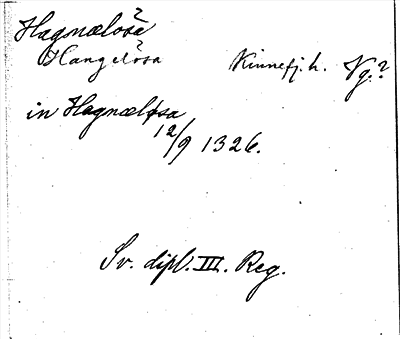 Hagnælosa?
Hangelösa Kinnefj. h. Vg.?
in Hagnæløsa
12/9 1326.
Sv. dipl. III. Reg.